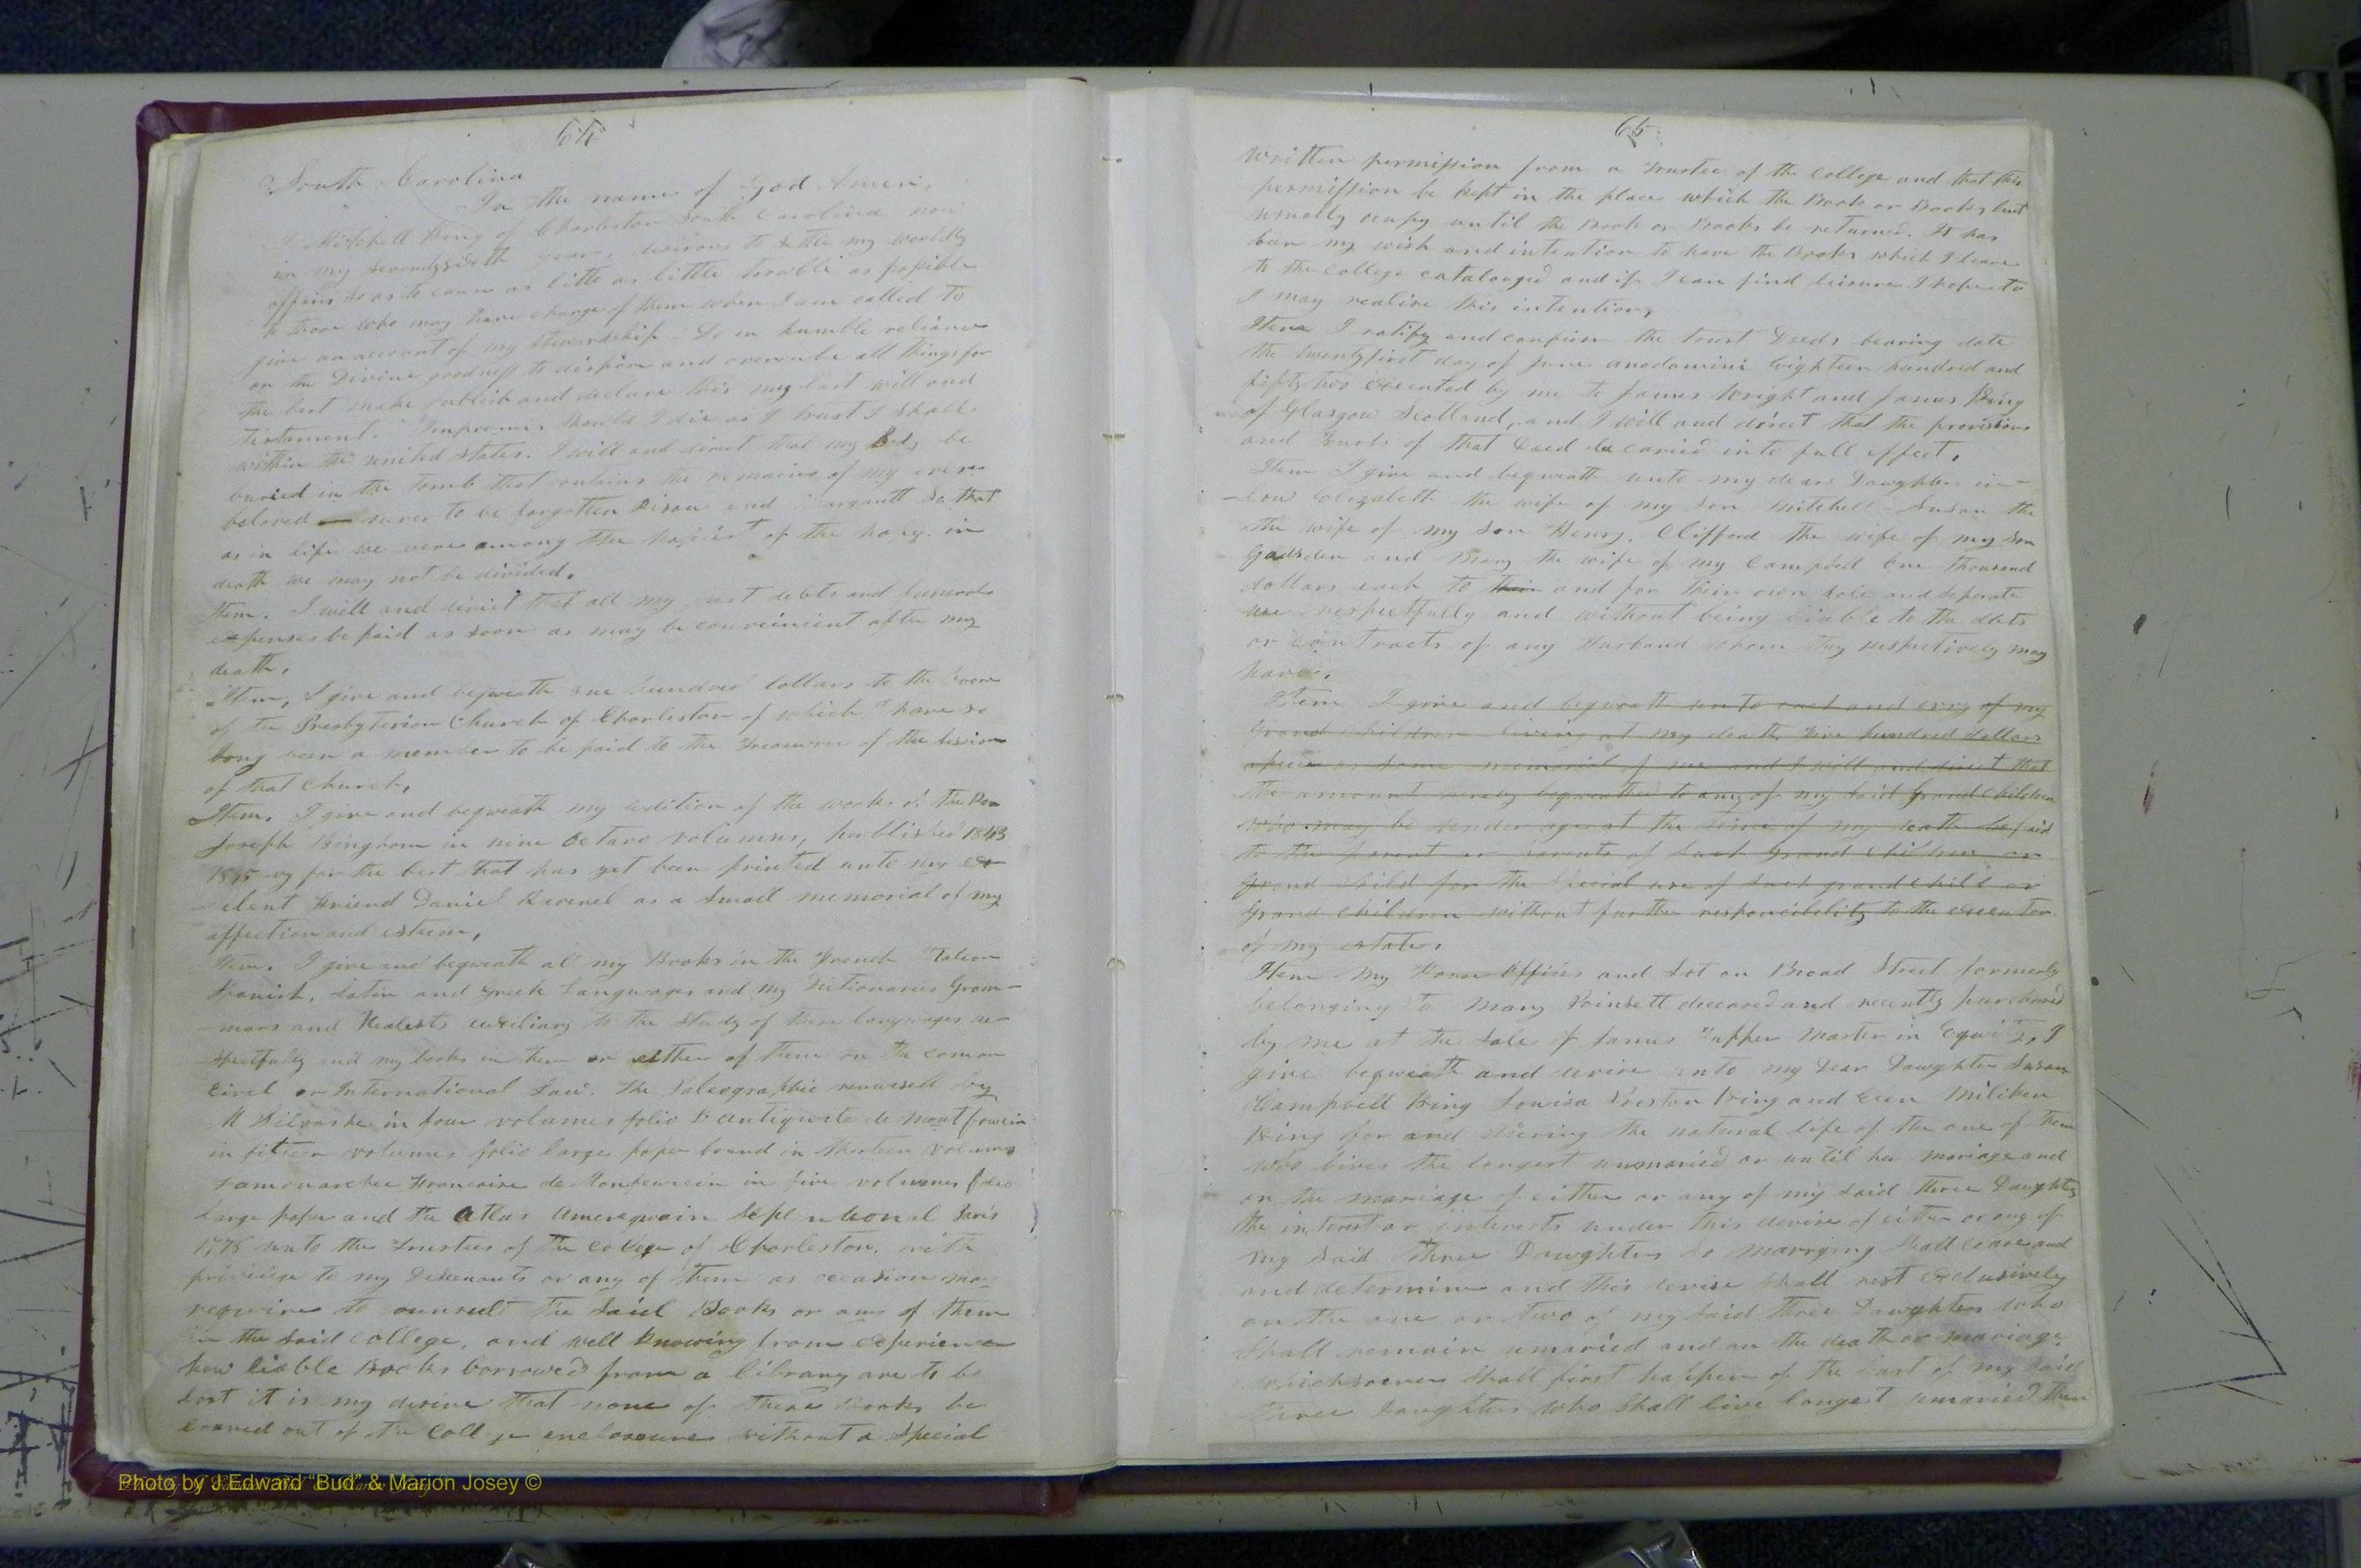 64
South Carolina
In the name of God Amen,
I Mitchell King of Charleston South Carolina now
in my Seventysixth year, desirous to settle my worldly
affairs so as to cause as little as little trouble as possible
to those who may have charge of them when I am called to
give an account of my Stewardship - Do in humble reliance
on the Divine goodness to dispose and overrule all things for
the best make publish and declare this my last will and
testament. Impremis Should I die as I trust I Shall
within the united States. I will and direct that my Body be
buried in the tomb that contains the remains of my ever
beloved never to be forgotten and Margarett So that
as in life we were among the hapiest of the hapy. in
death we may not be divided.
Item. I will and direct that all my just debts and funeral
expenses be paid as soon as may be conveinient after my
death.
Item, I give and bequeath one hundred dollars to the
of the Presbyterian Church of Charleston of which I have so
long been a member to be paid to the Treasurer of the Session
of that Church,
Item. I give and bequeath my edition of the works of the Rev
Joseph Bingham in nine Octavo volumns, published 1843
1845 by far the best that has yet been printed unto my ex
-elent Friend Daniel Ravenel as a Small memorial of my
affection and esteem,
Item. I give and bequeath all my Books in the French Italian
Spanish, Latin and Greek Languages and my Dictionaries Gram-
-mars and auxiliary to the Study of these languages re-
spectfully and my books in them or either of them on the comon
Civil or International Law. The Paleographic by
M Silvestre in four volumes folio L antiquite de montfaucin
in fifteen volumes folio large paper bound in thirteen volums
Francaise de Monfaucin in five volumes folio
large paper and the atlas Ameriquain Septentrional Paris
1778 unto the Trustees of the College of Charleston, with
privilege to my Desenants or any of them as occasion may
require to counsult the Said Books or any of them
in the Said College, and well knowing from experience
how liable Books borrowed from a library are to be
lost it is my desire that none of these Books be
loaned out of the College enclosures without a Special
65
written permission from a Trustee of the College and that this
permission be kept in the place which the Book or Books lent
usually ocupy until the Book or Books be returned. It has
been my wish and intention to have the Books which I leave
to the College catalouged and if I can find leisure I hope to
I may realise this intention,
Item I ratify and confirm the trust Deeds bearing date
the twentyfirst day of June anodomini Eighteen hundred and
fifty two executed by me to James Wright and James King
of Glasgow Scotland, and I will and direct that the provisions
and Trusts of that Deed be caried into full effect,
Item I give and bequeath unto my dear Daughters in-
-Law Elizabeth the wife of my Son Mitchell Susan the
the wife of my Son Henry, Clifford the wife of my Son
Gadsden and Mary the wife of my Campbell One thousand
dollars each to their and for their own sole and Seperate
use respectfully and without being liable to the debts
or contracts of any Husband whom they respectively may
have.
Item I give and bequeath unto each and evry of my
Grand Children living at my death five hundred dollars
apiece as some memorial of me and I will and direct that
the amount hereby bequeathed to any of my Said Grand Children
who may be under age at the time of my death be paid
to the parent or parents of Such Grand Children or
Grand Child for the Special use of Such grand Child or
Grand Children without further responcibility to the executors
of my estate.
Item My House Offices and Lot on Broad Street formerly
belonging to Mary Poinsett deceased and recently purchased
by me at the Sale of James Tupper Master in Equity, I
give bequeath and devise unto my Dear Daughters Susan
Campbell King Louisa Preston King and Ellen Miliken
King for and durring the natural life of the one of them
who lives the longest unmaried or until her mariage and
on the marriage of either or any of my Said three Daughters
the interest or interests under this devise of either or any of
my Said three Daughters So marrying Shall cease and
and determine and this devise Shall rest exclusively
on the one or two of my Said three Daughters who
Shall remain unmaried and on the death or mariage
whichsoever Shall first happen of the last of my Said
three Daughters who Shall live longest unmaried then
Photo by J Edward "Bud" & Marion Josey ©